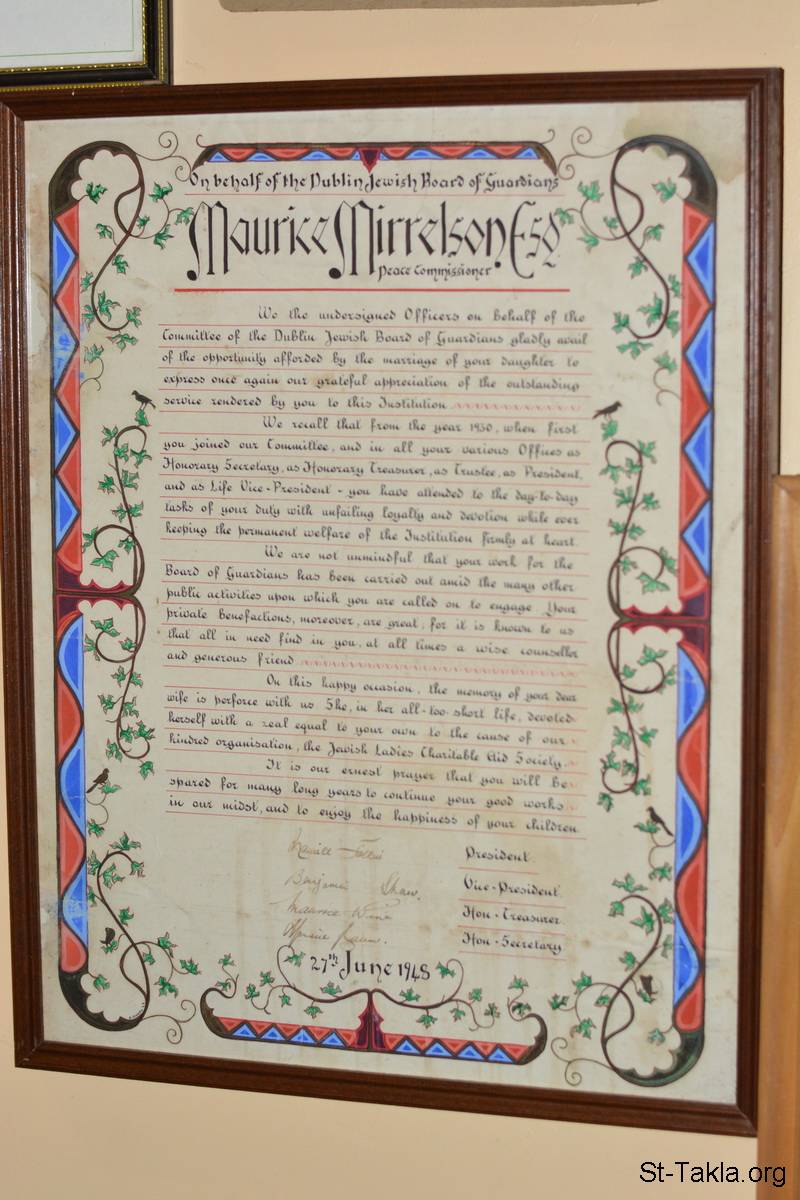 On behalf of the Dublin Jewish Board of Guardians
Maurice Mirrelson Esq
Peace Commissioner
We the undersigned Officers on behalf of the
Committee of the Dublin Jewish Board of Guardians gladly avail
of the opportunity afforded by the marriage of your daughter to
express once again our grateful appreciation of the outstanding
service rendered by you to this Institution
We recall that from the year 1930, when first
you joined our Committee, and in all your various Offices as
Honorary Secretary, as Honorary Treasurer, as Trustee, as President,
and as Life Vice-President - you have attended to the day-to-day
tasks of your duty with unfailing loyalty and devotion while ever
keeping the permanent welfare of the Institution firmly at heart
We are not unmindful that your work for the
Board of Guardians has been carried out amid the many other
public activities upon which you are called on to engage. Your
private benefactions, moreover, are great; for it is known to us
that all in need find in you, at all times a wise counsellor
and generous friend
On this happy occasion, the memory of your dear
wife is perforce with us She, in her all-too-short life, devoted
herself with a zeal equal to your own to the cause of our
kindred organisation, the Jewish Ladies Charitable Aid Society.
It is our ernest prayer that you will be
spared for many long years to continue your good works
in our midst, and to enjoy the happiness of your children
President
Benjamin Shaw. Vice-President
Maurice Hon-Treasurer
Hon-Secretary
27th June 1948
St-Takla.org